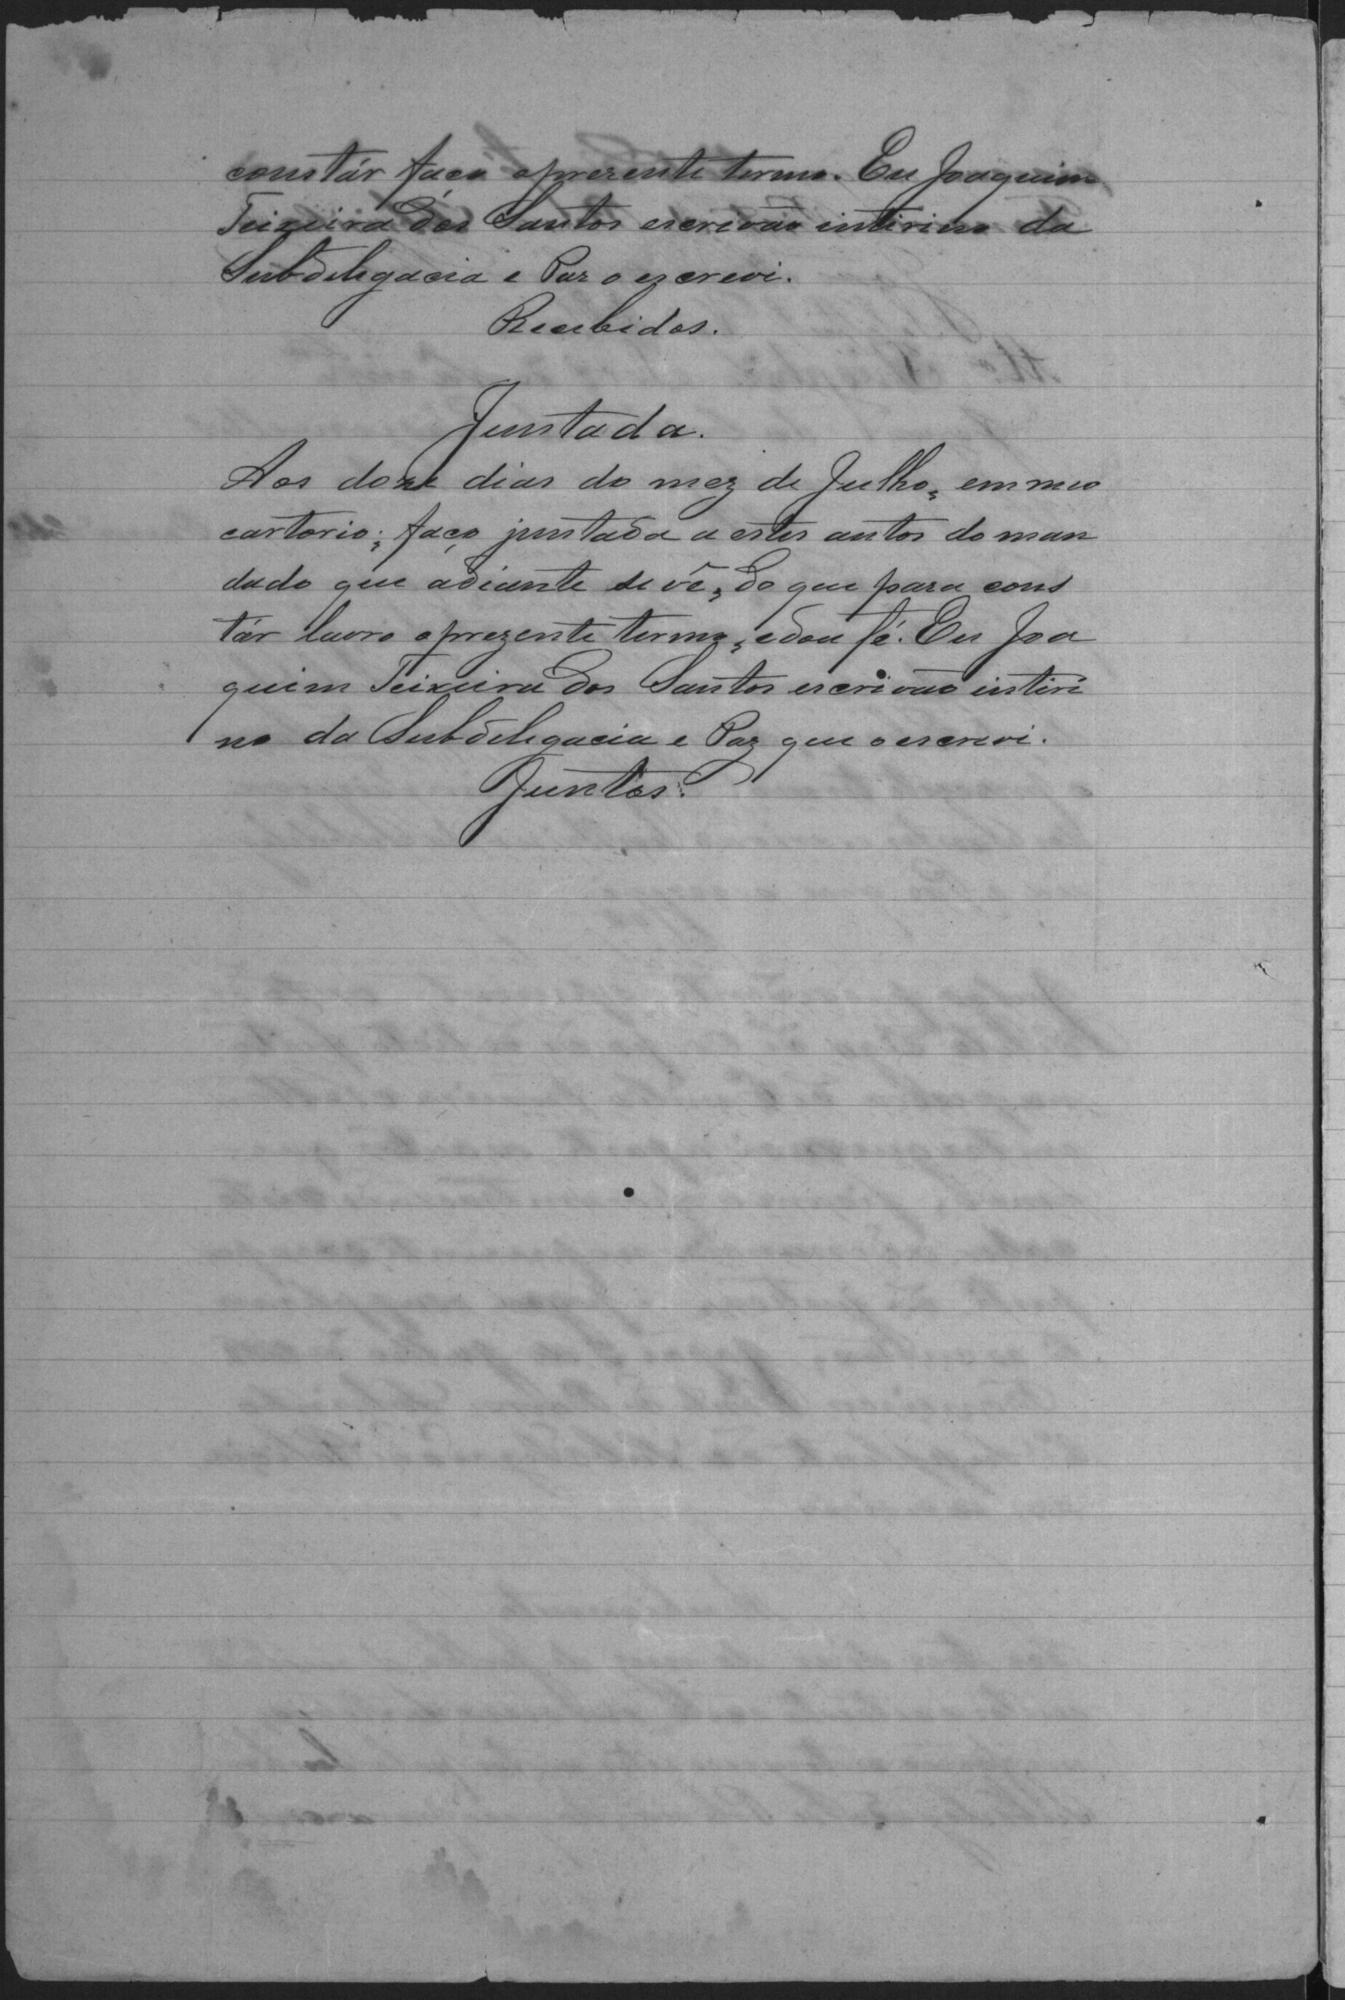 constár faço o prezente termo. Eu Joaquim
Teixeira dos Santos escrivão intirino da
Subdelegacia e Paz o escrevi.
Recebidos.
Juntada.
Aos doze dias do mez de Julho, em meu
cartorio; faço juntada a estes autos do man
dado que adiante se vê, do que para cons
tár lavro o prezente termo, e dou fé. Eu Joa
quim Teixeira dos Santos escrivão intiri
no da Subdelegacia e Paz que o escrevi.
Juntos.